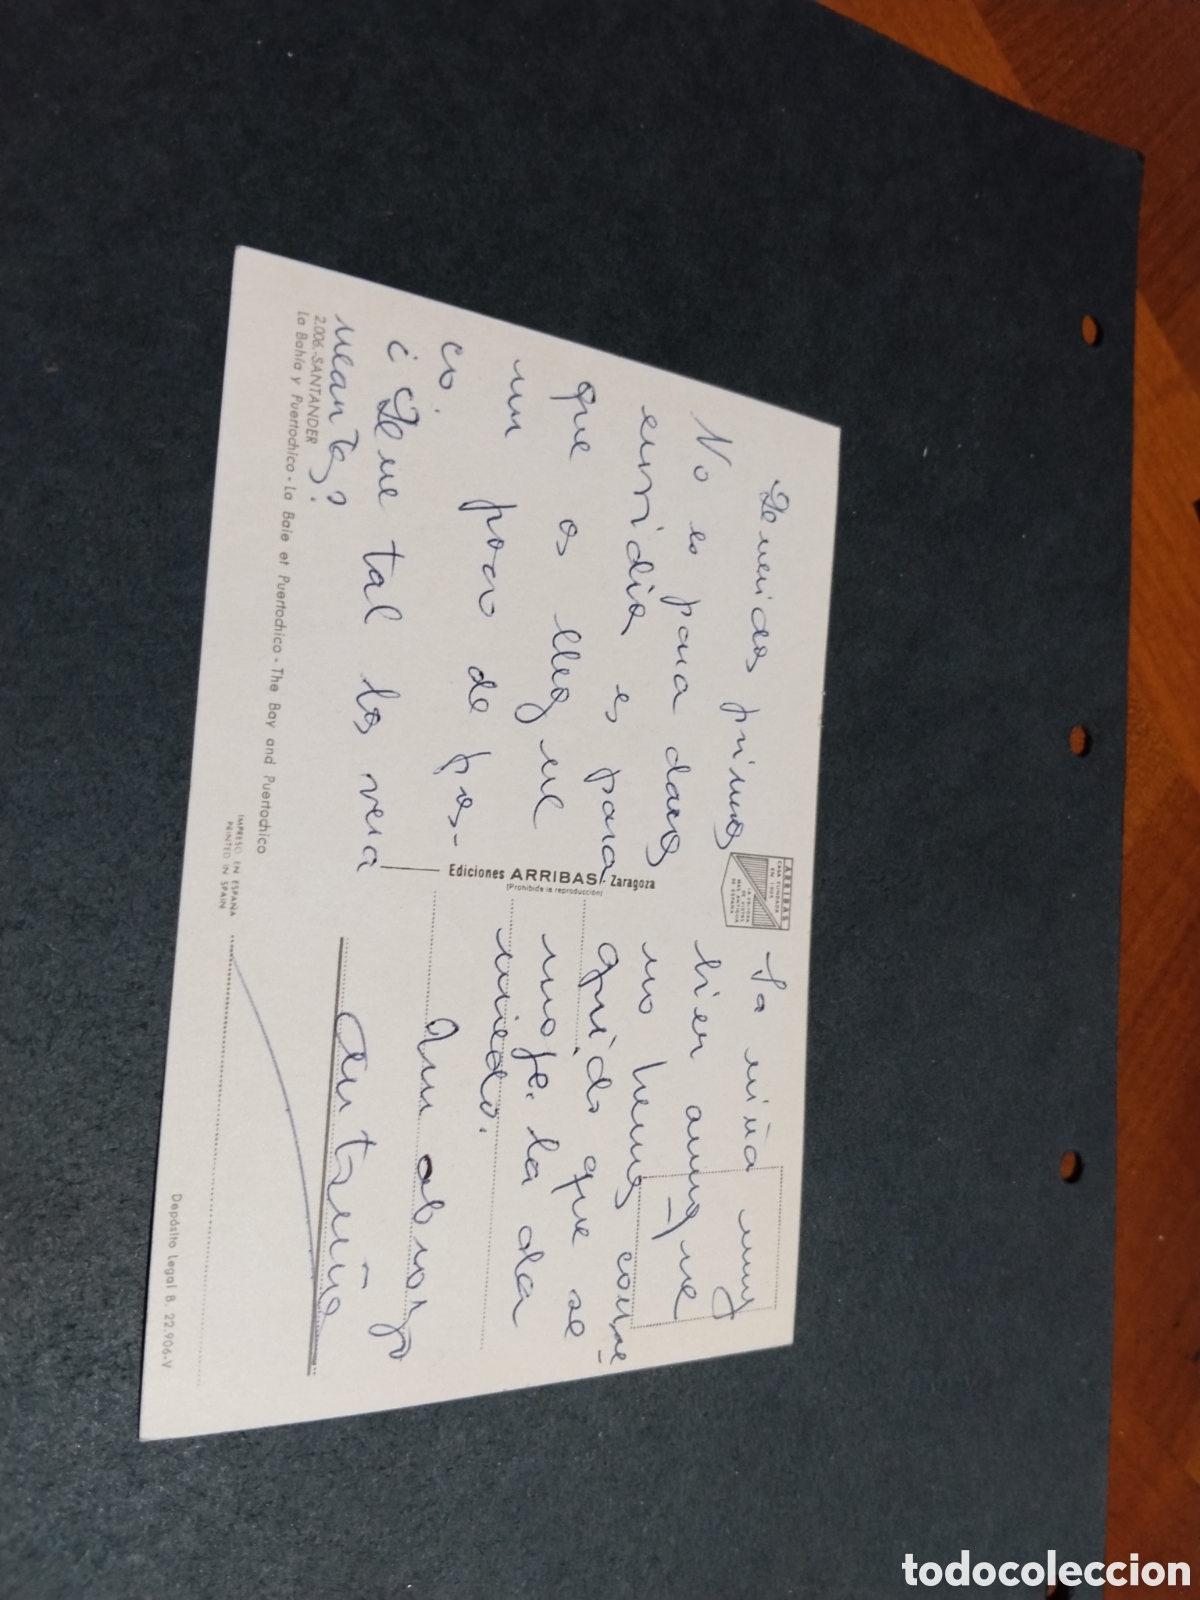 Queridos primos
No es para daros
envidia es para
que os llegue
un poco de fres-
co.
¿Que tal los vera
neantes?
2.006.-SANTANDER
La Bahía y Puertochico - La Baie et Puertochico - The Bay and Puertochico
IMPRESO EN ESPAÑA
PRINTED IN SPAIN
ARRIBAS
CASA FUNDADA
EN 1905
LA EDITORA
DE VISTAS
MAS ANTIGUA
DE ESPAÑA
Ediciones ARRIBAS - Zaragoza
(Prohibida la reproducción)
La niña muy
bien aunque
no hemos conse
guido que se
moje. la da
miedo.
Un abrazo
Depósito legal B. 22.906-V
todocoleccion